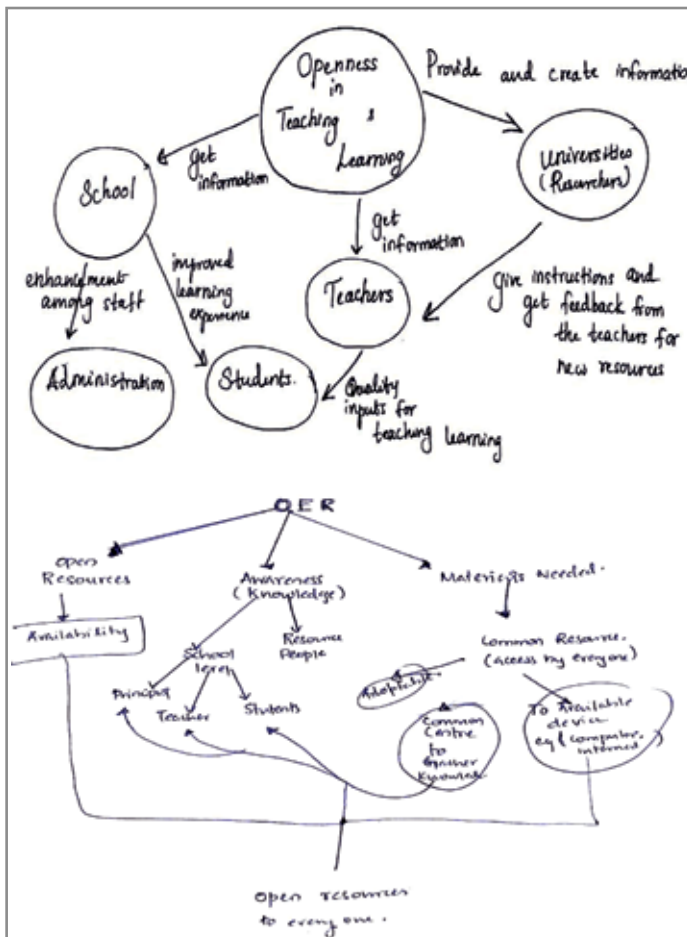 Openness
in
Teaching &
Learning
Provide and create information
get
information
School
Universities
(Researchers)
get
information
enhancement
among staff
improved
learning
experience
Teachers
give instructions and
get feedback from
the teachers for
new resources
Administration
Students.
Quality
inputs for
teaching learning
OER
Open
Resources
Awareness
(Knowledge)
Materials Needed.
Availability
School
level
Resource
People
Common Resource.
(access by everyone)
Principal
Teacher
Students
Adaptable.
Common
Centre
to
Gather
To Available
device
eg (computer.
Open resources
to every one.